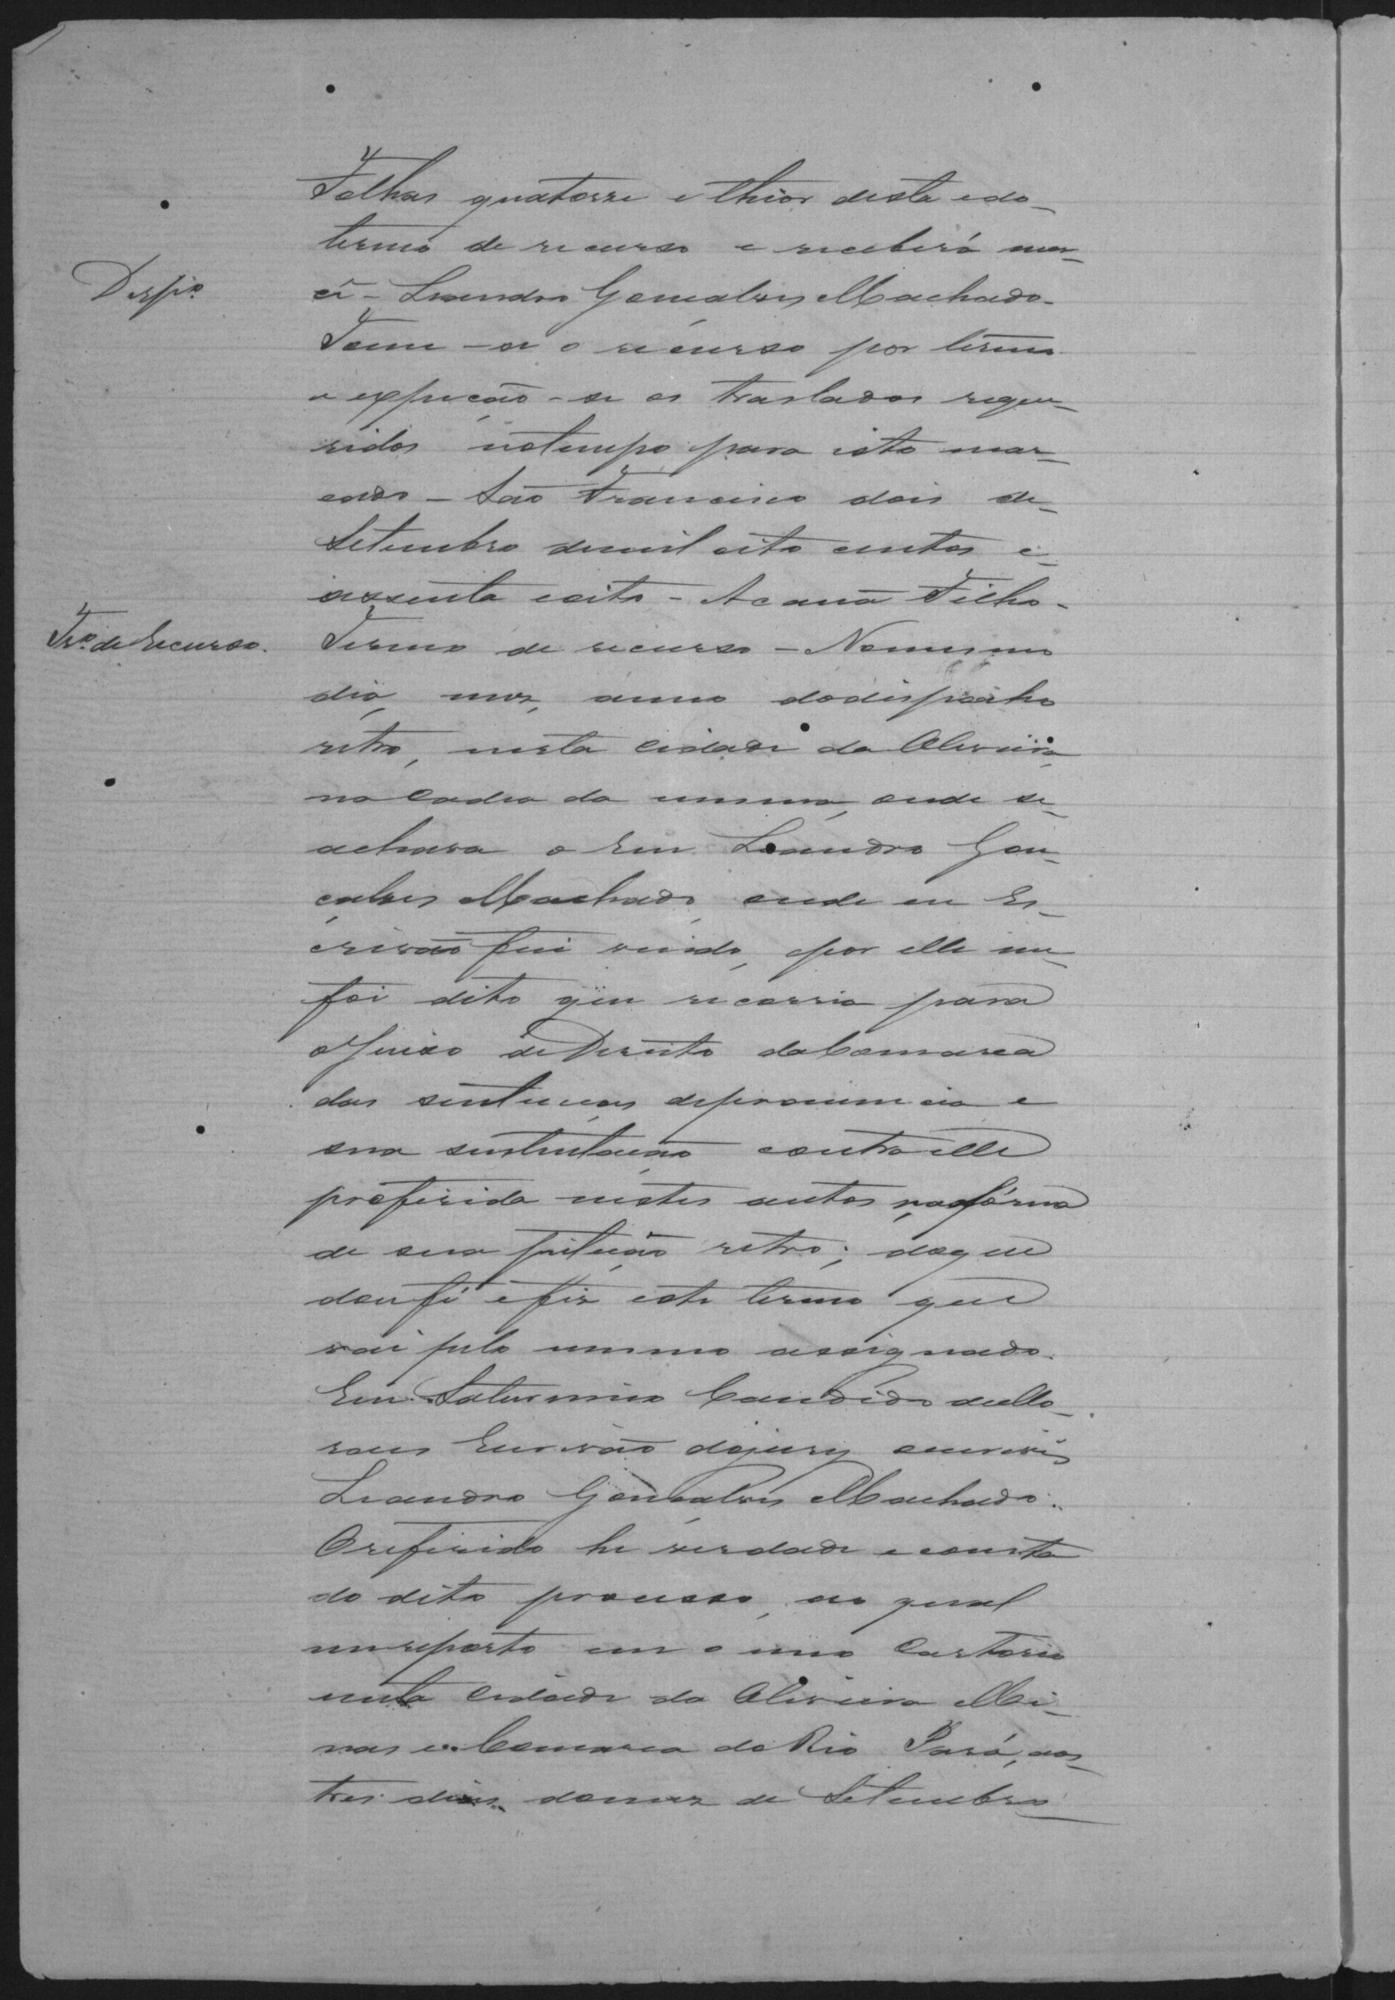 Folhas quatorze e thior desta e do
termo de recurso e receberá mer-
Desp.º
cê - Leandro Gonçalves Machado.
Tome-se o recurso por termo
e expeção-se os traslados reque-
ridos no tempo para isto mar-
cado - São Francisco dois de
Setembro de mil oito centos e
sessenta e oito - Acauã Filho.
Tr.º de Recurso.
Termo de recurso - No mesmo
dia, mez, anno do despacho
retro, nesta Cidade da Oliveira,
na Cadea da mesma, onde se
achava o Reu Leandro Gon-
çalves Machado onde eu Es-
crivão fui vindo, por elle me
foi dito que recorria para
o Juizo de Direito da Comarca
das sentenças de pronuncia e
sua sustentação contra elle
proferida nestes autos na fórma
de sua petição retro; do que
dou fé e fiz este termo que
vai pelo mesmo assignado.
Eu Saturnino Candido de Mo-
raes Escrivão do jury escrevi
Leandro Gonçalves Machado.
O referido he verdade e consta
do dito processo, ao qual
me reporto em o meo Cartorio
nesta Cidade da Oliveira Mi-
nas e Comarca do Rio Pará, aos
tres dias do mez de Setembro